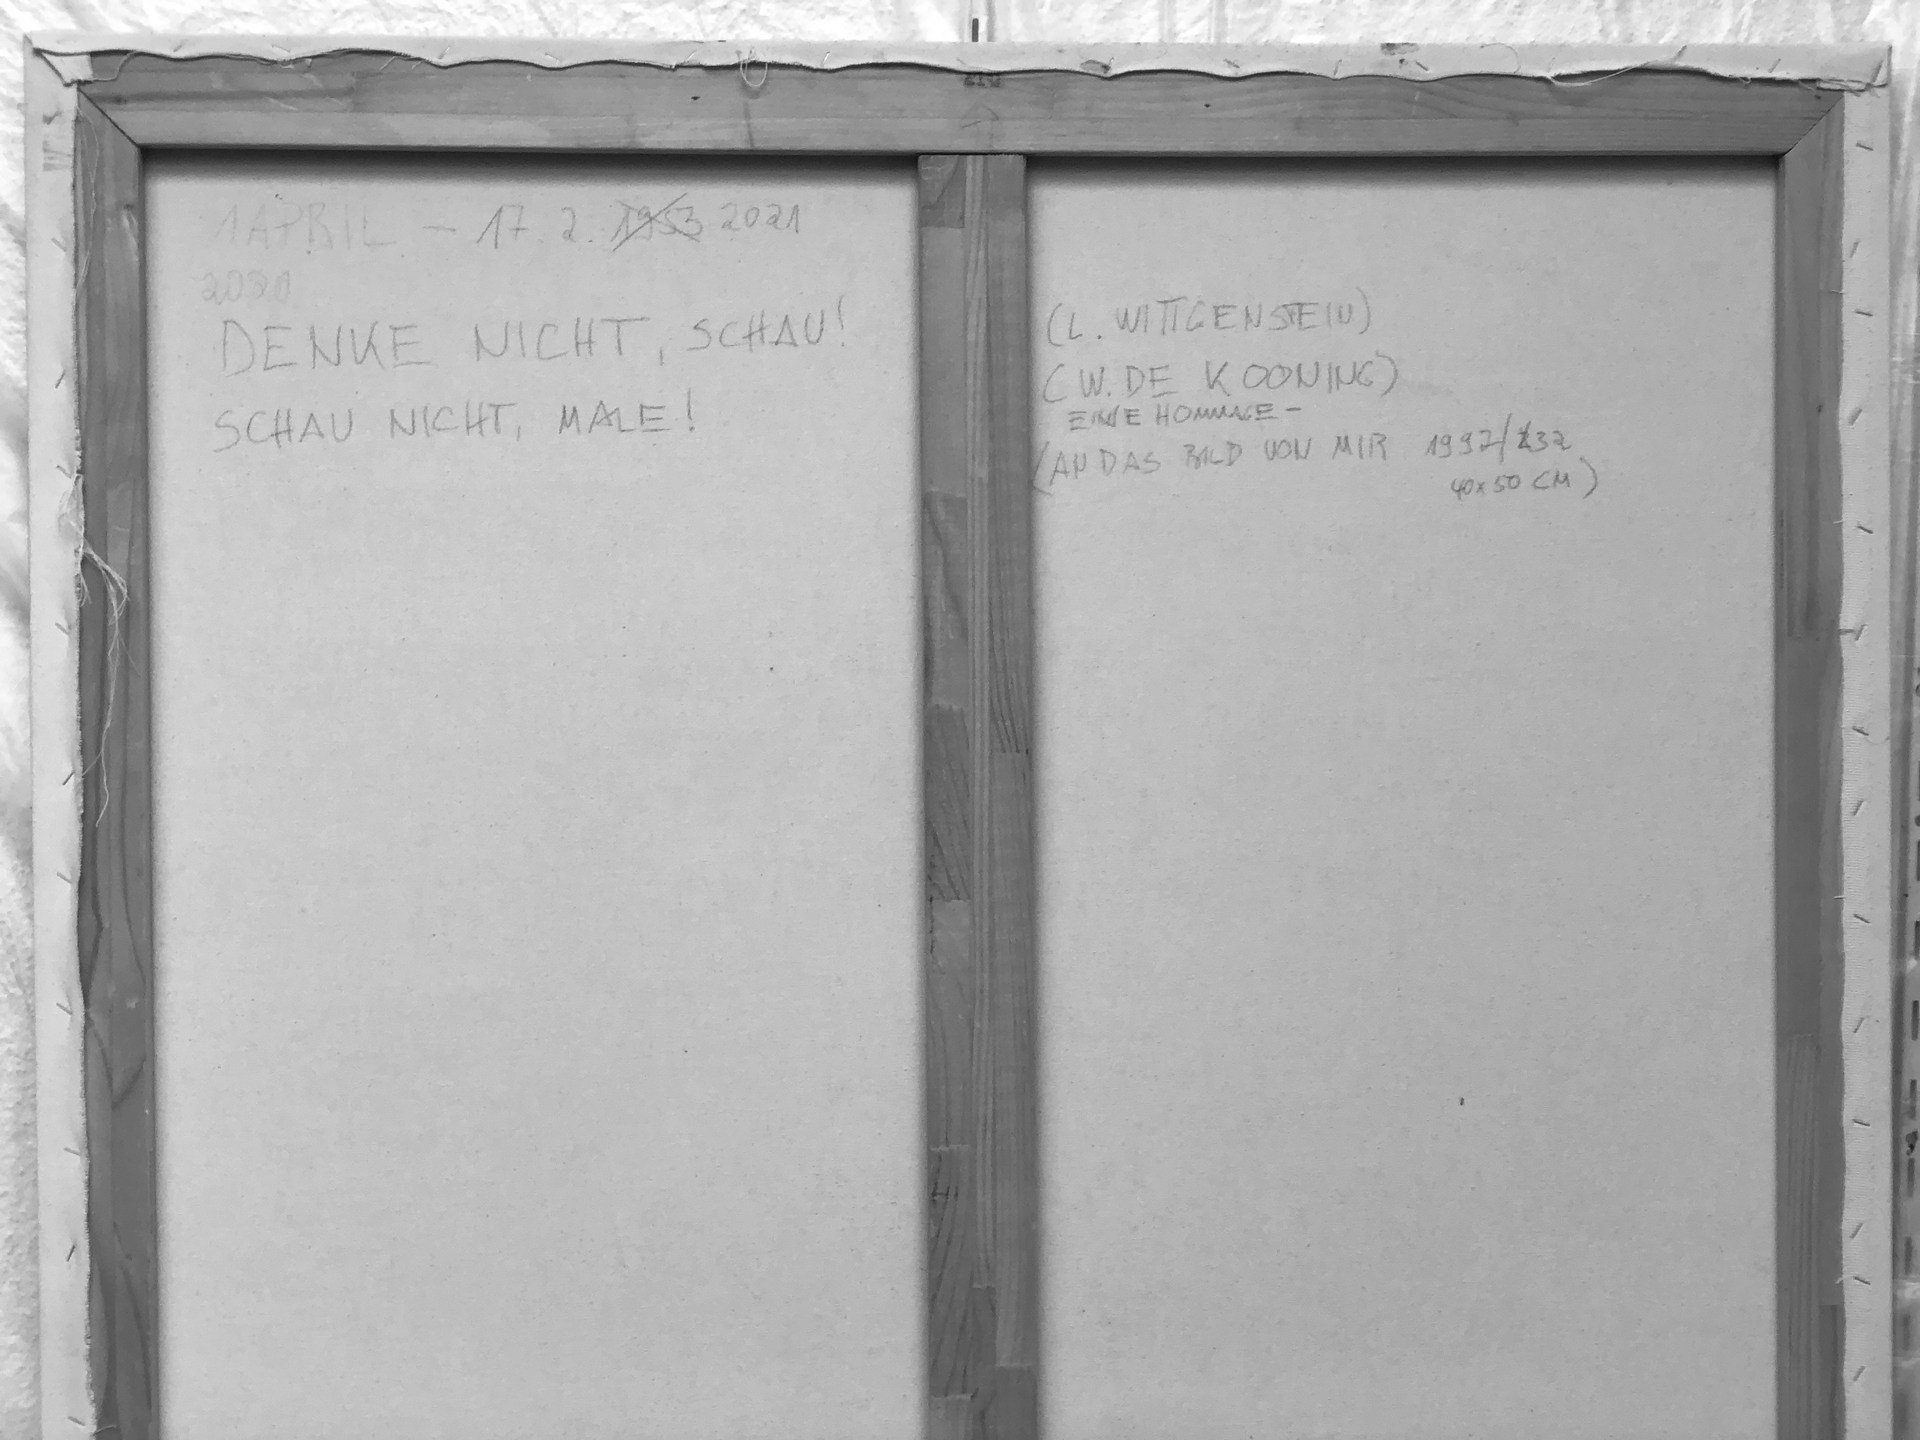 1APRIL – 17. 2. 1953 2021
2020
DENKE NICHT, SCHAU!
SCHAU NICHT, MALE!
(L. WITTGENSTEIN)
(W. DE KOONING)
EINE HOMMAGE –
(AN DAS BILD VON MIR 1992/232
40x50 CM)